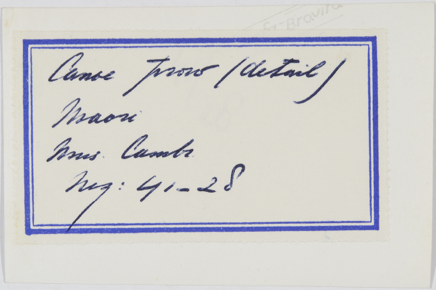 Canoe prow (detail)
Maori
Mus. Cambr.
Neg: 41-28